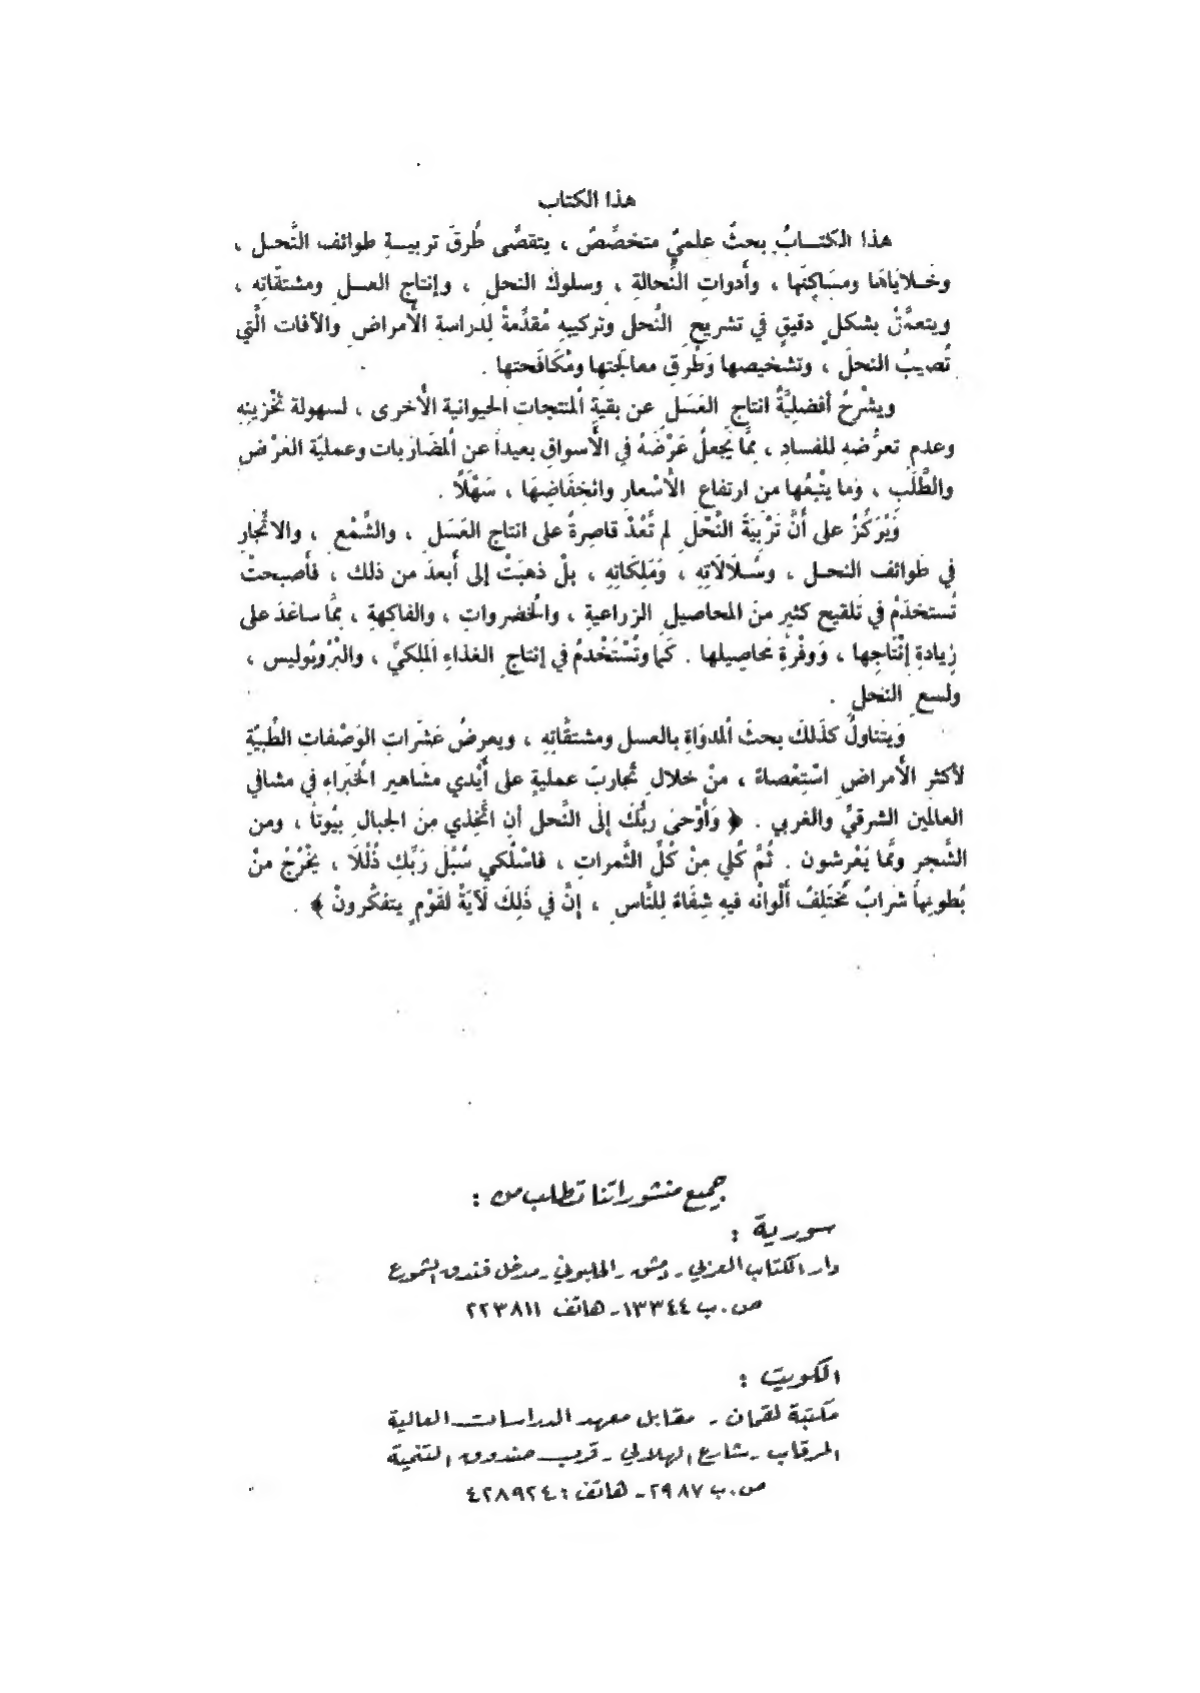 هذا الكتاب
هذا الكتـــابُ بحثٌ علميٌ متخصَّصٌ ، يتقصَّى طُرقَ تربيـــةِ طوائف النَّحـل ،
وخَـلايَاهَا ومسَاكِنَها ، وأدواتِ النَّحالةِ ، وسلوكَ النحلِ ، وإنتاجِ العسلِ ومشتقّاتِه ،
ويتعمَّقْ بشكلٍ دقيقٍ في تشريحِ النَّحلِ وتركيبهِ مُقدَّمةً لِدراسةِ الأمراضِ والآفات الَّتي
تُصيبُ النحلَ ، وتشخيصها وَطُرقِ معالجَتها ومُكَافَحتها .
ويشْرحُ أفضليَّةُ انتاجِ العَسَلِ عن بقيَةِ المنتجات الحيوانية الأخرى ، لسهولة تخْزينِهِ
وعدمِ تعرُّضهِ للفسادِ ، ممَّا يَجعلُ عَرْضَهُ في الأسواقِ بعيداً عن المُضَاربات وعمليّة العَرْضِ
والطَّلَبِ ، وما يتْبعُها من ارتفاع الأسْعارِ وانخفَاضِهَا ، سَهْلاً .
وَيُرَكِّزُ على أنَّ تَرْبيَةَ النَّحْلِ لم تَعُدْ قاصِرةً على انتاج العَسَلِ ، والشَّمْعِ ، والاتَّجارِ
في طَوائف النحـل ، وسُـلَالَاتِه ، وَمَلِكَاتِهِ ، بلْ ذهبَتْ إلى أبعدَ من ذلك ، فأصبحتْ
تُستخدَمْ في تَلقيح كثيرٍ منَ المحاصيلِ الزراعيةِ ، والخضرواتِ ، والفاكهةِ ، ممَّا ساعَدَ على
زِيادةِ إنْتَاجِها ، وَوفْرةِ محَاصِيلها . كَما وتُسْتَخْدمُ في إنتاجِ الغذاءِ المَلِكيِّ ، والبْرُوبُوليس ،
ولسعِ النحلِ .
وَيتناولُ كذَلكَ بحثَ المُدوَاةِ بالعسل ومشتقَّاتِه ، ويعرِضُ عَشَراتِ الوَصْفاتِ الطِّبيّةِ
لأكثر الأمراضِ اسْتِعْصاءً ، منْ خلالِ تَجاربَ عمليةٍ على أيْدي مشَاهير الخُبَراءِ في مشافي
العالمين الشرقيِّ والغربي . ﴿ وَأوْحىٰ ربُّكَ إلَى النَّحل أنِ اتَّخِذي مِنَ الجبالِ بيُوتاً ، ومن
الشَّجرِ ومَّما يَعْرِشون . ثُمَّ كُلي مِنْ كُلِّ الثَّمراتِ ، فاسْلُكي سُبُلَ رَبِّكِ ذُلُلاً ، يَخْرُجُ منْ
بُطونِها شرابٌ مُختَلِفٌ ألْوانُه فيهِ شِفَاءٌ لِلنَّاسِ ، إنَّ في ذَلِكَ لَآيَةً لقَوْمٍ يتفكَّرونْ ﴾ .
جميع منشوراتنا تطلب من :
سورية :
دار الكتاب العربي - دمشق - الحلبوني - مدخل فندق الشموع
ص.ب ١٣٣٤٤ - هاتف ٢٢٣٨١١
الكويت :
مكتبة لقمان - مقابل معهد الدراسات العالية
المرقاب - شارع الهلالي - قرب صندوق التنمية
ص.ب ٢٩٨٧ - هاتف : ٤٢٨٩٢٤